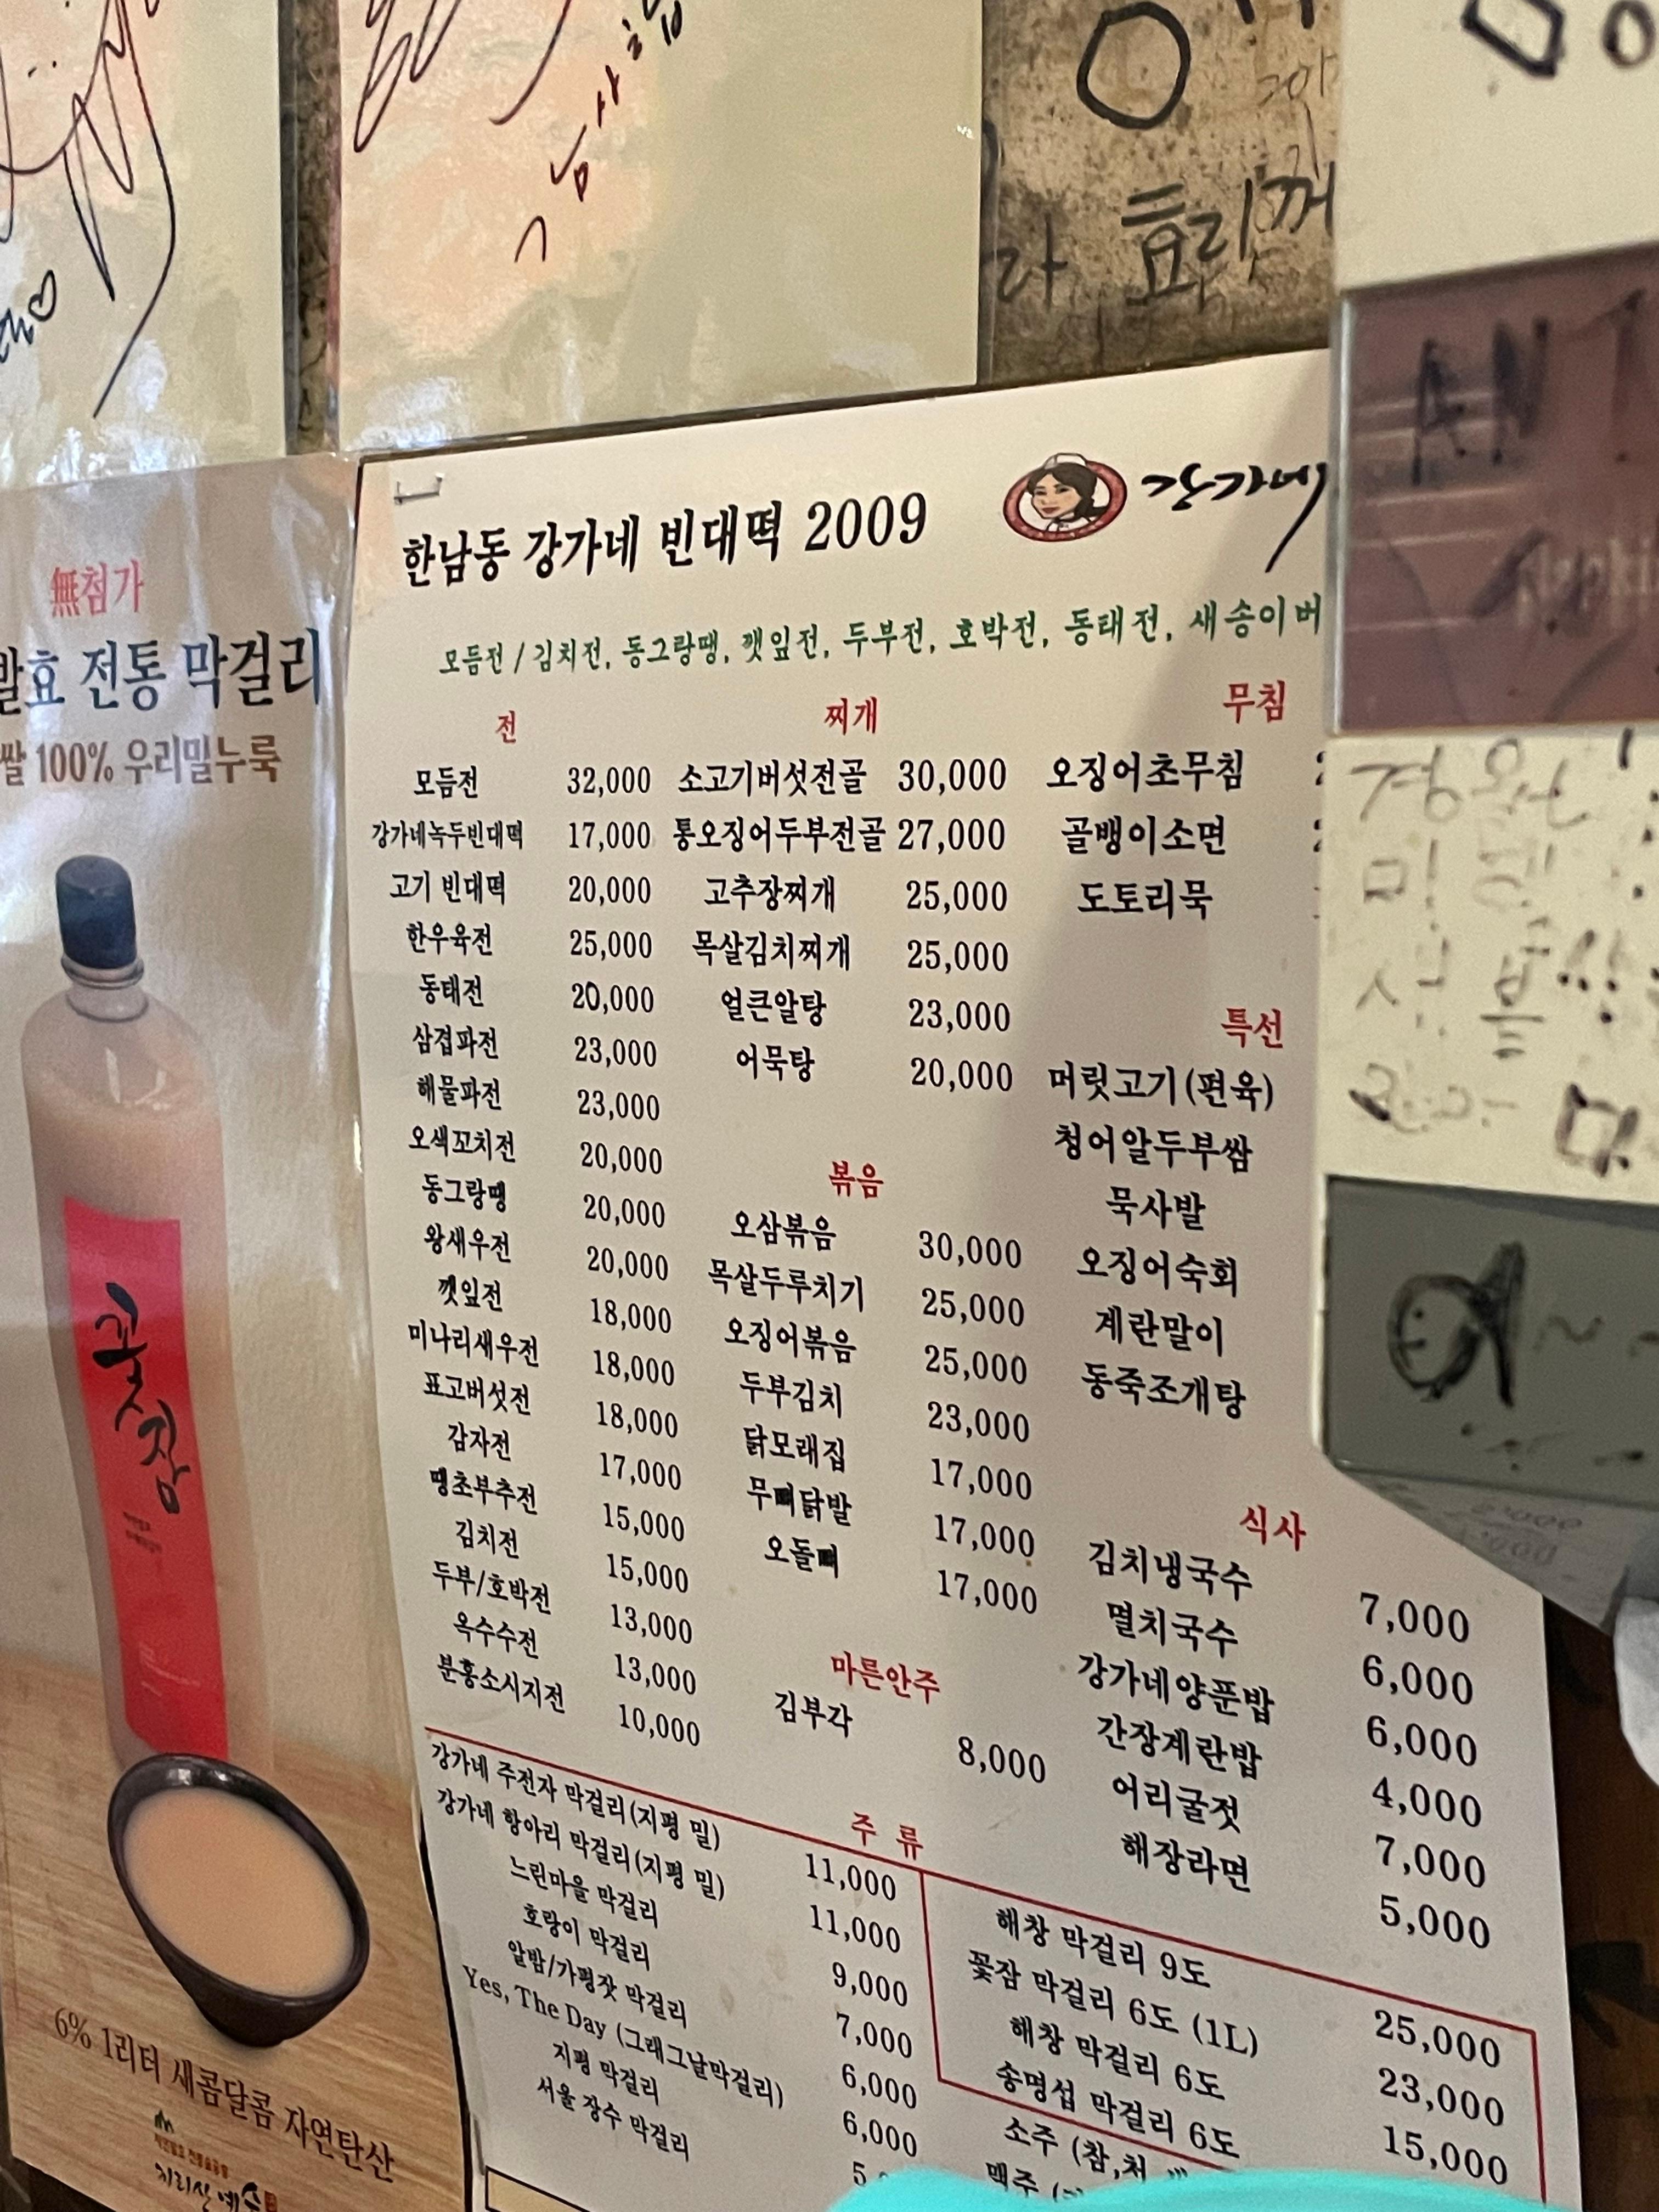 효리
無첨가
발효 전통 막걸리
쌀 100% 우리밀누룩
꽃잠
6% 1리터 새콤달콤 자연탄산
한남동 강가네 빈대떡 2009
강가네
모듬전 / 김치전, 동그랑땡, 깻잎전, 두부전, 호박전, 동태전, 새송이버
전
모듬전 32,000
강가네녹두빈대떡 17,000
고기 빈대떡 20,000
한우육전 25,000
동태전 20,000
삼겹파전 23,000
해물파전 23,000
오색꼬치전 20,000
동그랑땡 20,000
왕새우전 20,000
깻잎전 18,000
미나리새우전 18,000
표고버섯전 18,000
감자전 17,000
땡초부추전 15,000
김치전 15,000
두부/호박전 13,000
옥수수전 13,000
분홍소시지전 10,000
찌개
소고기버섯전골 30,000
통오징어두부전골 27,000
고추장찌개 25,000
목살김치찌개 25,000
얼큰알탕 23,000
어묵탕 20,000
볶음
오삼볶음 30,000
목살두루치기 25,000
오징어볶음 25,000
두부김치 23,000
닭모래집 17,000
무뼈닭발 17,000
오돌뼈 17,000
마른안주
김부각 8,000
무침
오징어초무침
골뱅이소면
도토리묵
특선
머릿고기(편육)
청어알두부쌈
묵사발
오징어숙회
계란말이
동죽조개탕
식사
김치냉국수 7,000
멸치국수 6,000
강가네양푼밥 6,000
간장계란밥 4,000
어리굴젓 7,000
해장라면 5,000
주 류
강가네 주전자 막걸리(지평 밀) 11,000
강가네 항아리 막걸리(지평 밀) 11,000
느린마을 막걸리 9,000
호랑이 막걸리 7,000
알밤/가평잣 막걸리 6,000
Yes, The Day (그래그날막걸리) 6,000
지평 막걸리
서울 장수 막걸리
해창 막걸리 9도 25,000
꽃잠 막걸리 6도 (1L) 23,000
해창 막걸리 6도 15,000
송명섭 막걸리 6도
소주 (참,처
맥주